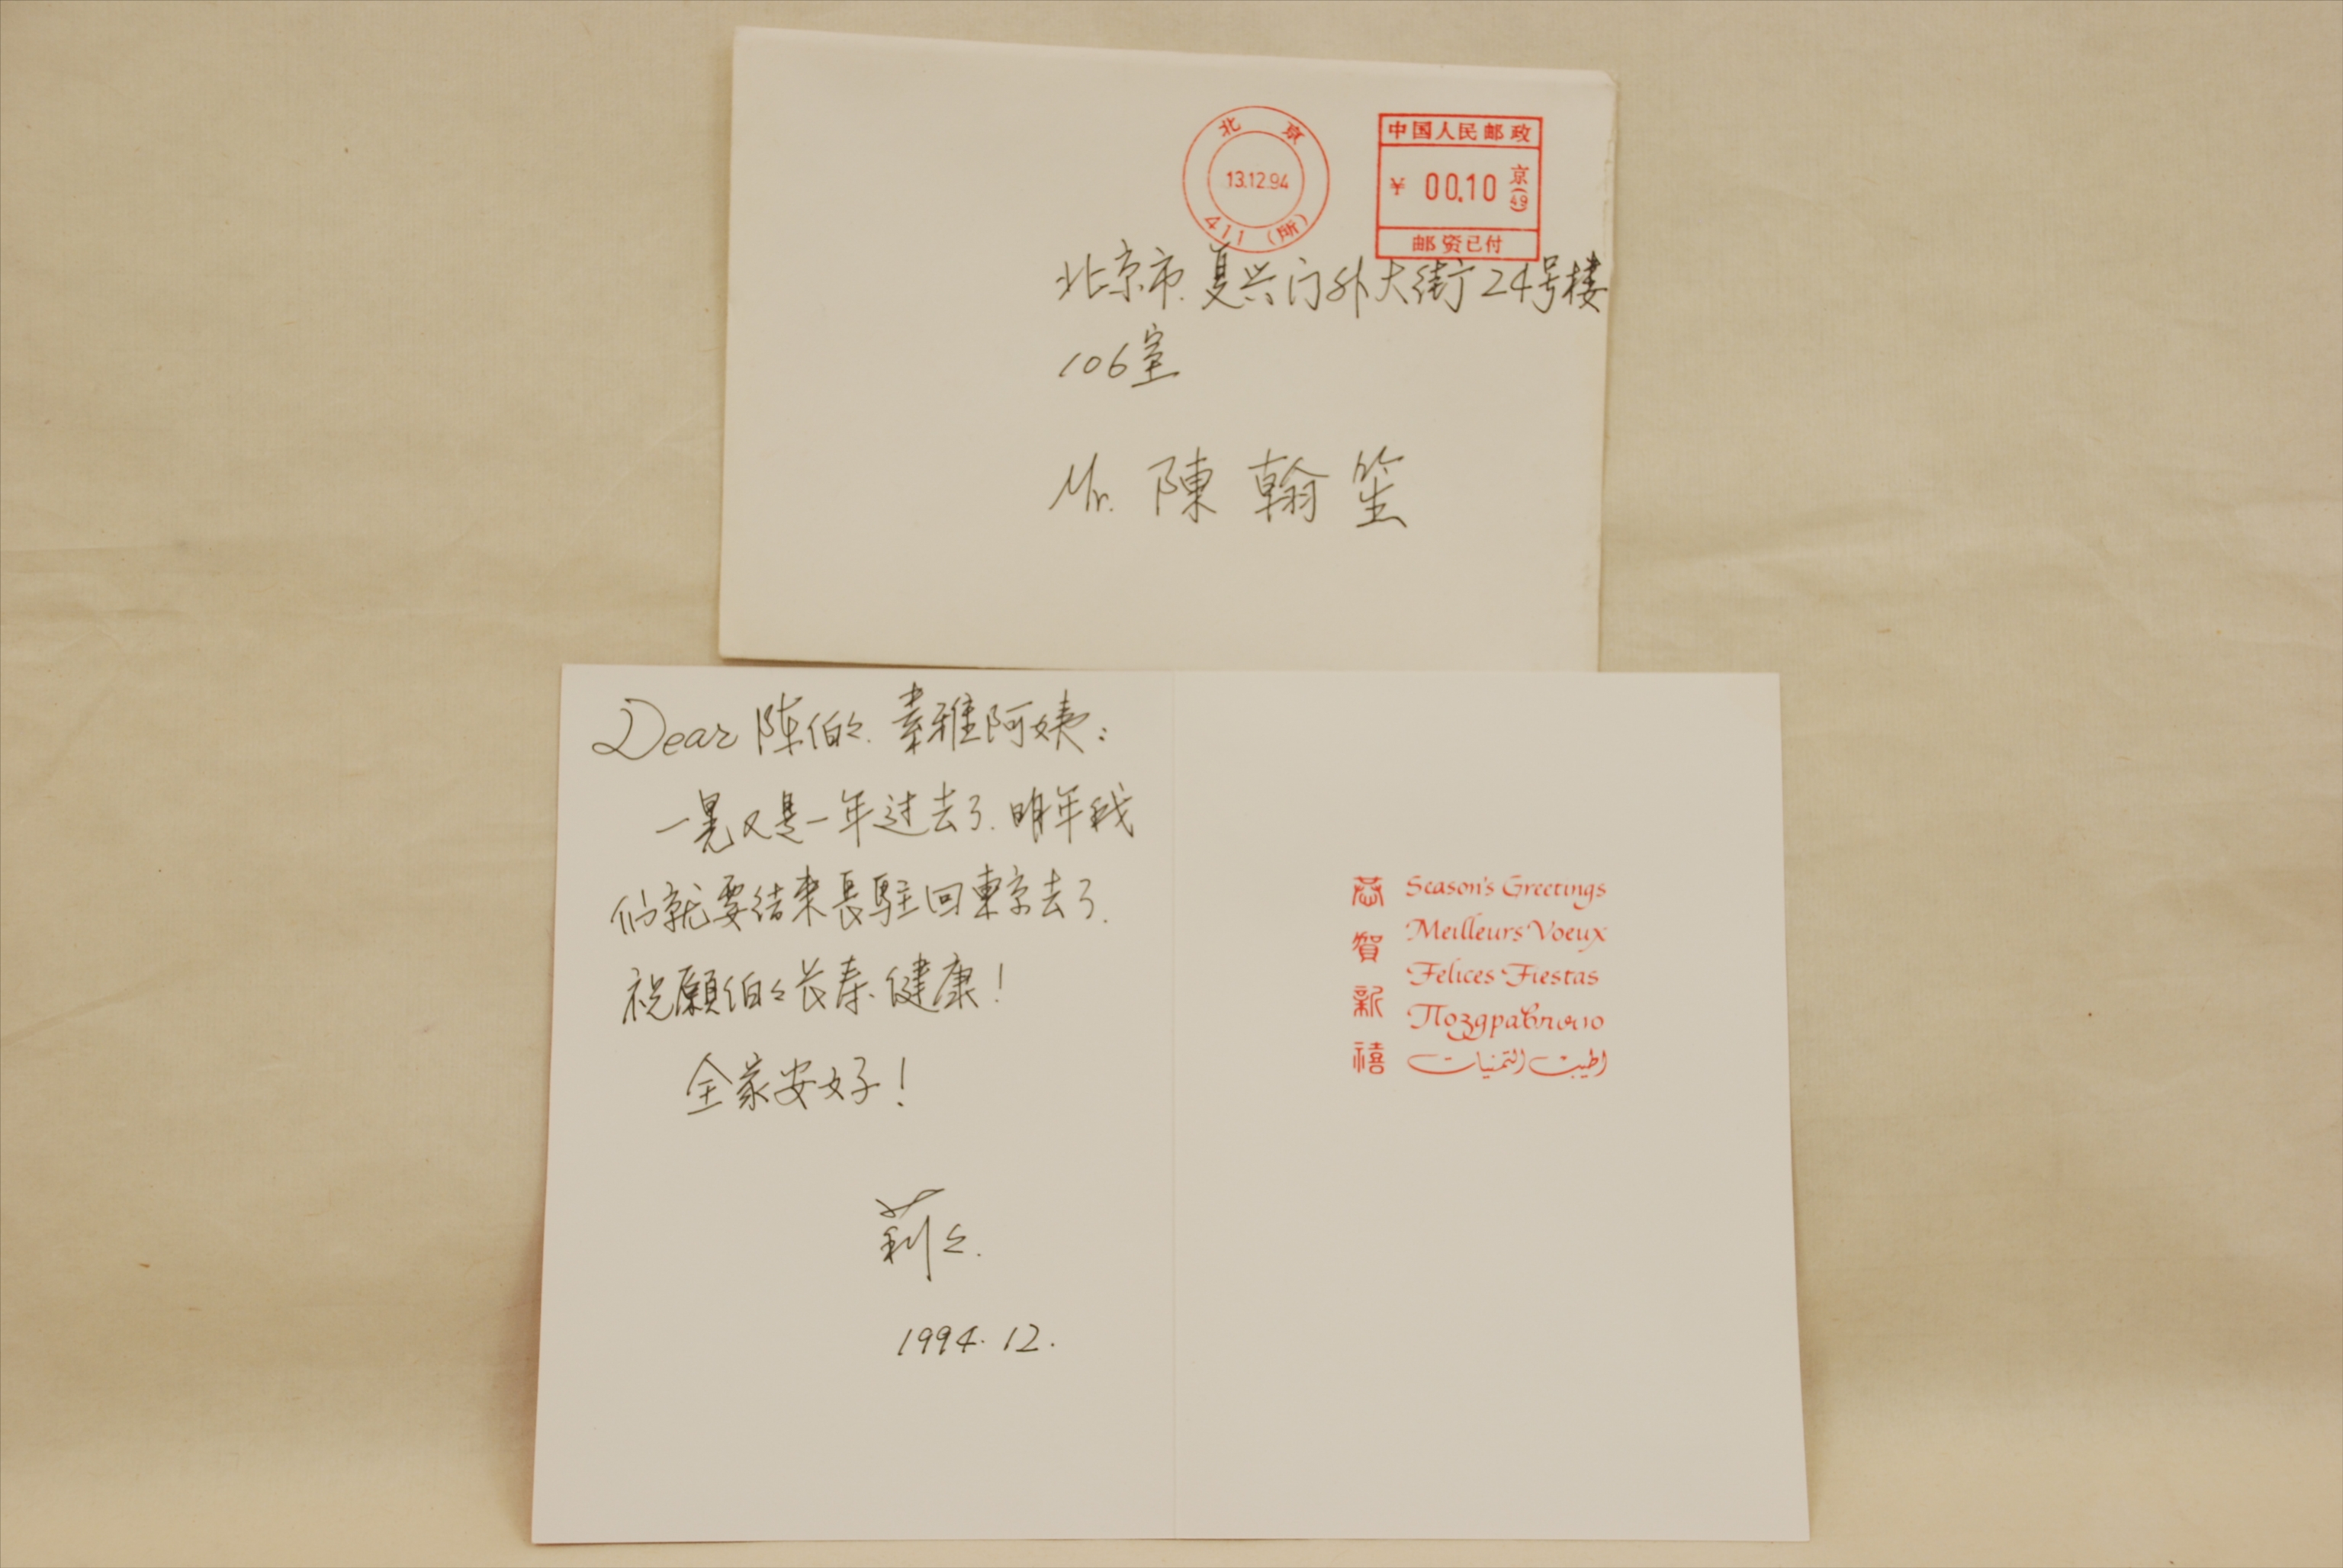 北京
13.12.94
411(所)
中国人民邮政
¥ 00.10 京(49)
邮资已付
北京市.复兴门外大街24号楼
106室
Mr. 陳翰笙
Dear 陈伯々.素雅阿姨:
一晃又是一年过去了.明年我
们就要结束長駐回東京去了.
祝願伯々长寿.健康!
全家安好!
莉々.
1994.12.
恭賀新禧
Season's Greetings
Meilleurs Voeux
Felices Fiestas
Поздравляю
اطيب التمنيات